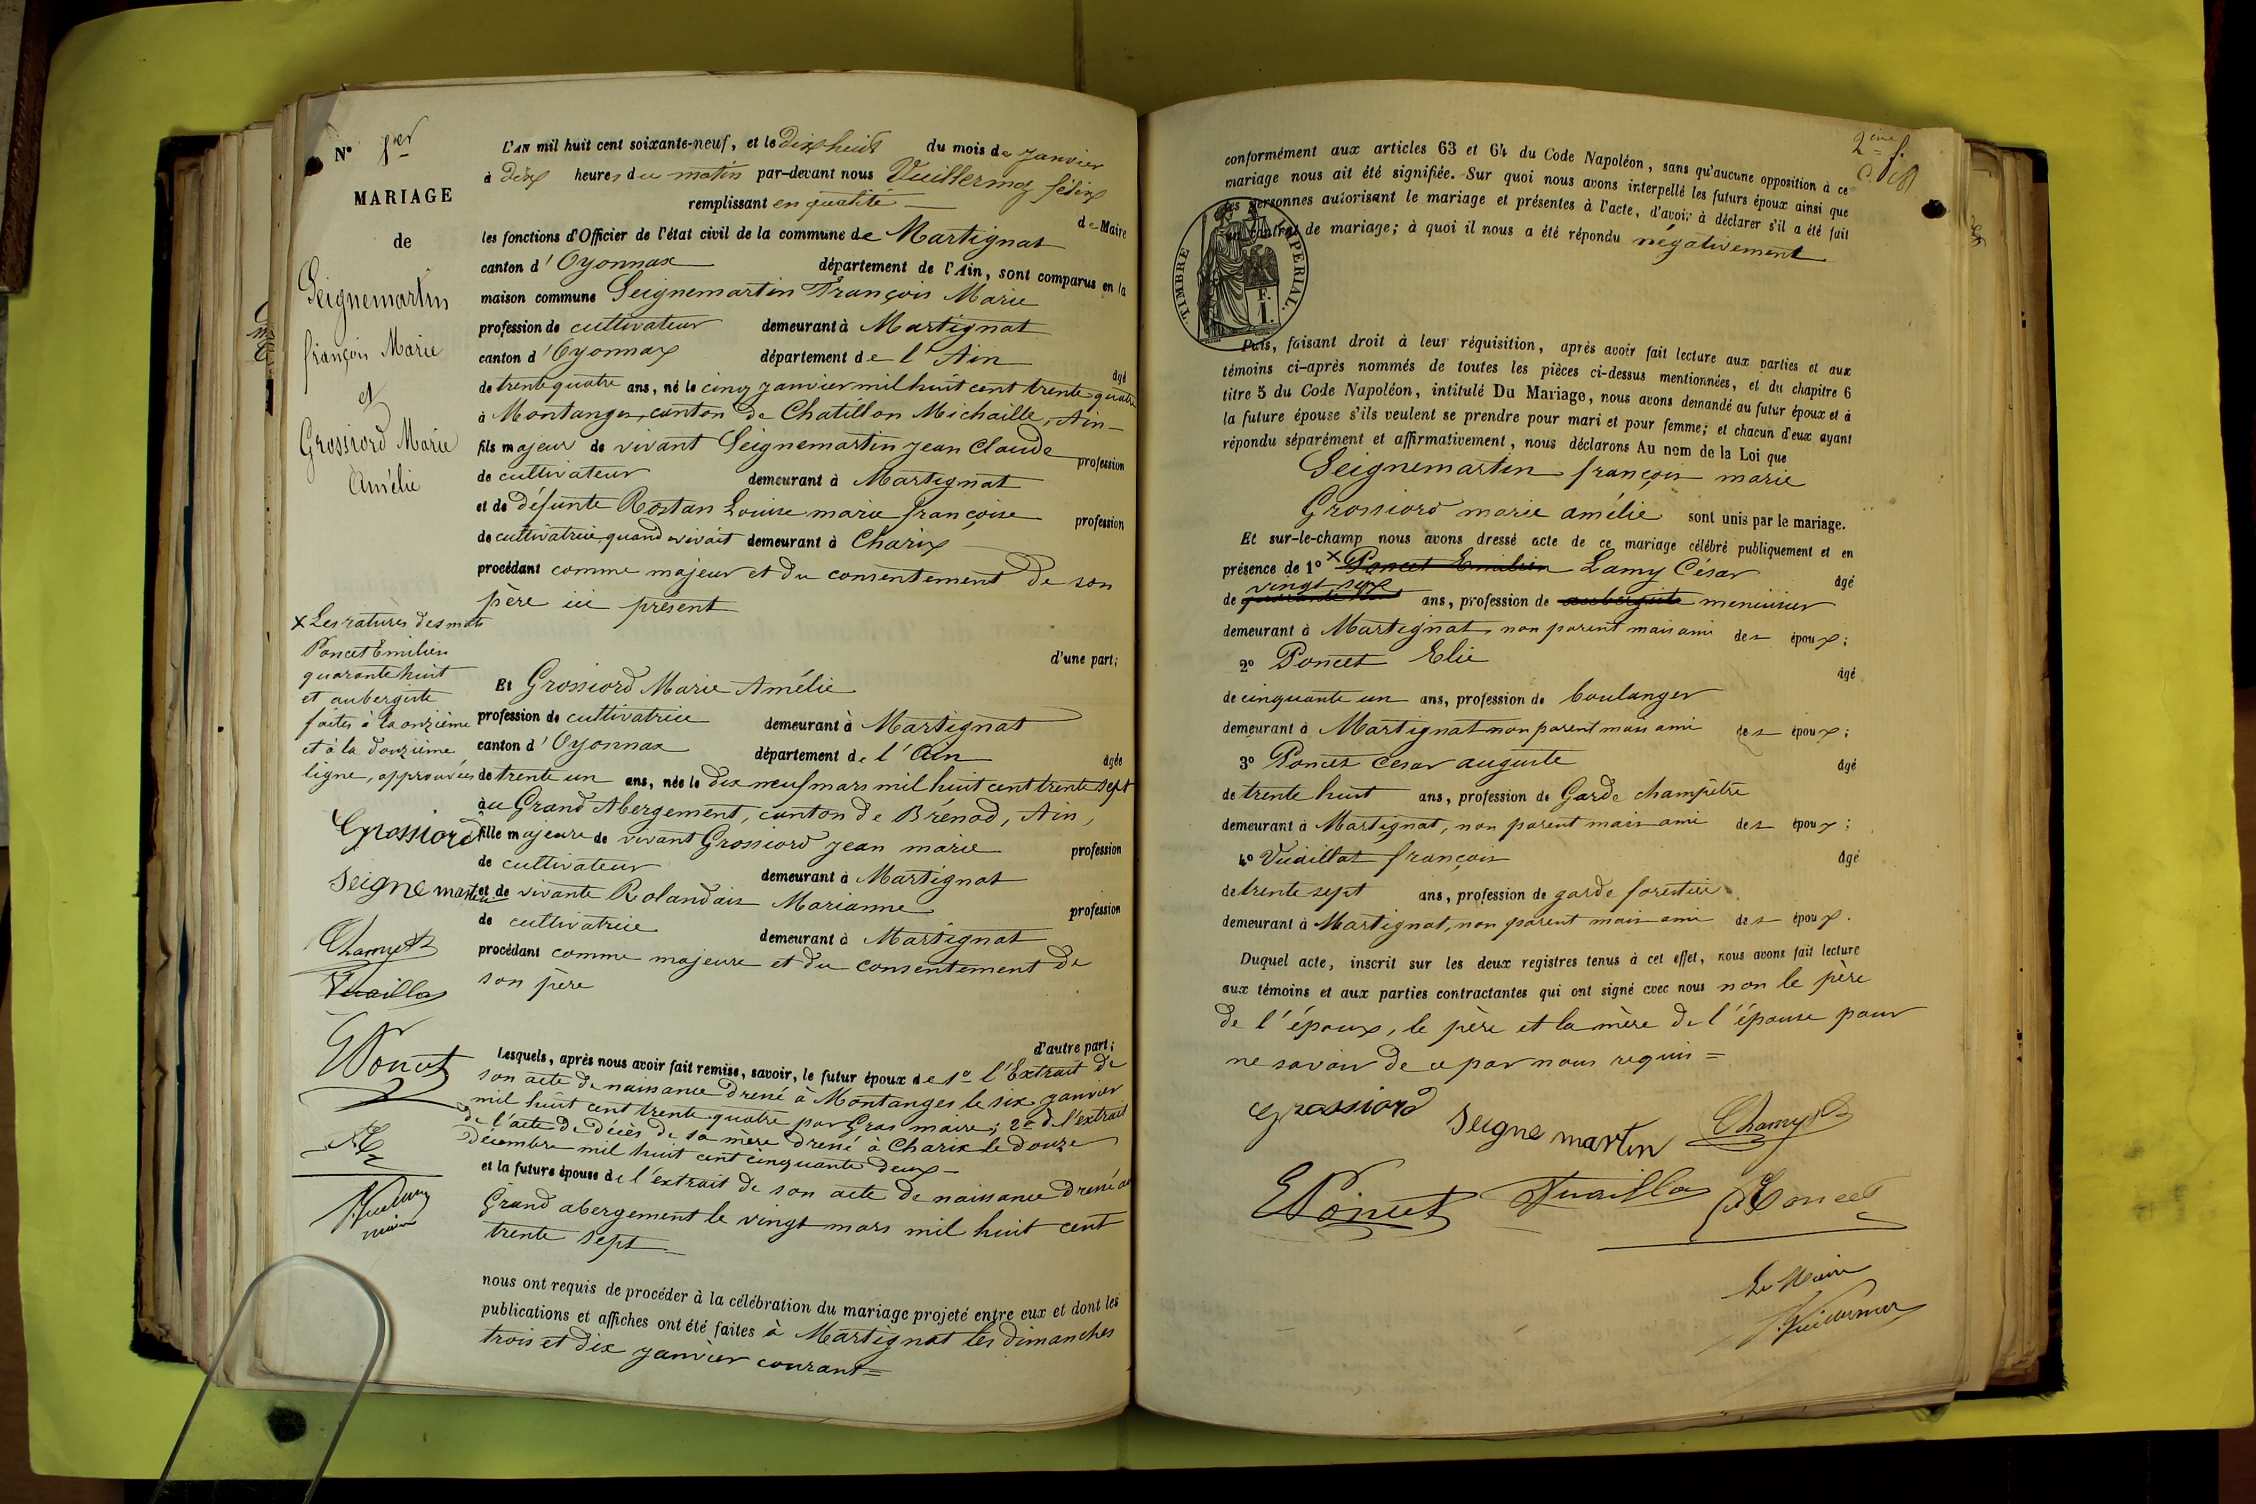 N° 1er
MARIAGE
de
Seignemartin
françois Marie
et
Grossiord Marie
Amélie
L'AN mil huit cent soixante-neuf, et le dix huit du mois de janvier
à dix heures du matin par-devant nous Vuillermoz félix
remplissant en qualité de Maire
les fonctions d'Officier de l'état civil de la commune de Martignat
canton d'Oyonnax département de l'Ain, sont comparus en la
maison commune Seignemartin François Marie
profession de cultivateur demeurant à Martignat
canton d'Oyonnax département de l'Ain âgé
de trente quatre ans, né le cinq janvier mil huit cent trente quatre
à Montanges, canton de Chatillon Michaille, Ain
fils majeur de vivant Seignemartin jean claude profession
de cultivateur demeurant à Martignat
et de défunte Rostan Louise marie françoise profession
de cultivatrice quand vivait demeurant à Charix
procédant comme majeur et du consentement de son
père ici présent
d'une part;
Et Grossiord Marie Amélie
profession de cultivatrice demeurant à Martignat
canton d'Oyonnax département de l'Ain âgée
de trente un ans, née le dix neuf mars mil huit cent trente sept
au Grand Abergement, canton de Brénod, Ain,
fille majeure de vivant Grossiord jean marie profession
de cultivateur demeurant à Martignat
et de vivante Rolandais Marianne profession
de cultivatrice demeurant à Martignat
procédant comme majeure et du consentement de
son père
d'autre part;
Lesquels, après nous avoir fait remise, savoir, le futur époux de 1° l'Extrait de
son acte de naissance dressé à Montanges le six janvier
mil huit cent trente quatre par Gras maire; 2° de l'extrait
de l'acte de décès de sa mère dressé à Charix le douze
décembre mil huit cent cinquante deux
et la future épouse de l'extrait de son acte de naissance dressé au
Grand abergement le vingt mars mil huit cent
trente sept
nous ont requis de procéder à la célébration du mariage projeté entre eux et dont les
publications et affiches ont été faites à Martignat les dimanches
trois et dix janvier courant =
x Les ratures des mots
Poncet Emilien
quarante huit
et aubergiste
faites à la onzième
et à la douzième
ligne, approuvées
Grossiord
Seigne martin
Vuaillat
EPoncet
maire
2ème f.
conformément aux articles 63 et 64 du Code Napoléon, sans qu'aucune opposition à ce
mariage nous ait été signifiée. Sur quoi nous avons interpellé les futurs époux ainsi que
les personnes autorisant le mariage et présentes à l'acte, d'avoir à déclarer s'il a été fait
un contrat de mariage; à quoi il nous a été répondu négativement
TIMBRE IMPERIAL.
Puis, faisant droit à leur réquisition, après avoir fait lecture aux parties et aux
témoins ci-après nommés de toutes les pièces ci-dessus mentionnées, et du chapitre 6
titre 5 du Code Napoléon, intitulé Du Mariage, nous avons demandé au futur époux et à
la future épouse s'ils veulent se prendre pour mari et pour femme; et chacun d'eux ayant
répondu séparément et affirmativement, nous déclarons Au nom de la Loi que
Seignemartin françois marie
Grossiord marie amélie sont unis par le mariage.
Et sur-le-champ nous avons dressé acte de ce mariage célébré publiquement et en
présence de 1° x Poncet Emilien Lamy César âgé
vingt six
de quarante huit ans, profession de aubergiste menuisier
demeurant à Martignat, non parent mais ami des époux;
2° Poncet Elie âgé
de cinquante un ans, profession de boulanger
demeurant à Martignat non parent mais ami des époux;
3° Poncet césar auguste âgé
de trente huit ans, profession de Garde champêtre
demeurant à Martignat, non parent mais ami des époux;
4° Vuaillat françois âgé
de trente sept ans, profession de garde forestier
demeurant à Martignat, non parent mais ami des époux.
Duquel acte, inscrit sur les deux registres tenus à cet effet, nous avons fait lecture
aux témoins et aux parties contractantes qui ont signé avec nous non le père
de l'époux, le père et la mère de l'épouse pour
ne savoir de ce par nous requis =
Grossiord
Seigne martin
EPoncet
Vuaillat
Poncet
Le Maire
Vuillermoz